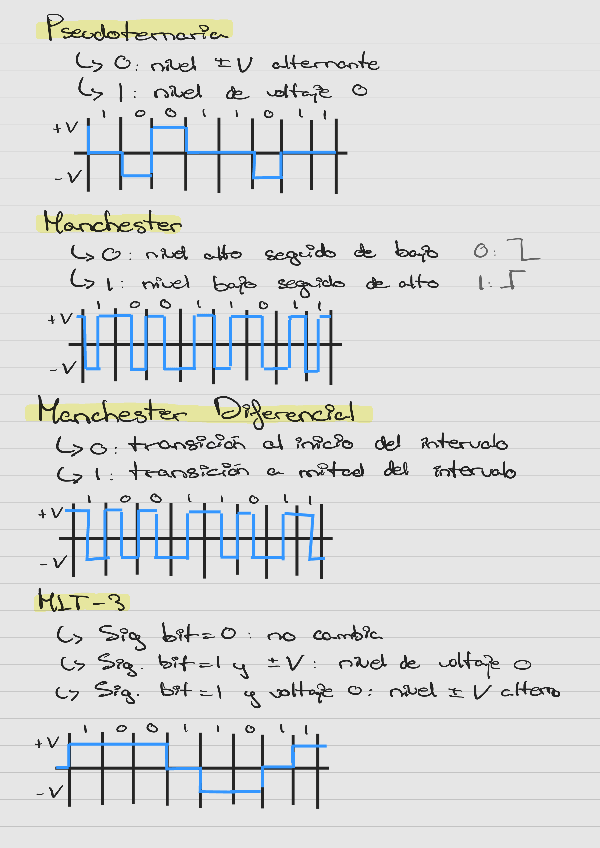 Pseudoternaria
↳ 0: nivel ±V alternante
↳ 1: nivel de voltaje 0
1 0 0 1 1 0 1 1
+V
-V
Manchester
↳ 0: nivel alto seguido de bajo 0:
↳ 1: nivel bajo seguido de alto 1:
1 0 0 1 1 0 1 1
+V
-V
Manchester Diferencial
↳ 0: transición al inicio del intervalo
↳ 1: transición a mitad del intervalo
1 0 0 1 1 0 1 1
+V
-V
MLT-3
↳ Sig bit=0: no cambia
↳ Sig. bit=1 y ±V: nivel de voltaje 0
↳ Sig. bit=1 y voltaje 0: nivel ±V alterno
1 0 0 1 1 0 1 1
+V
-V